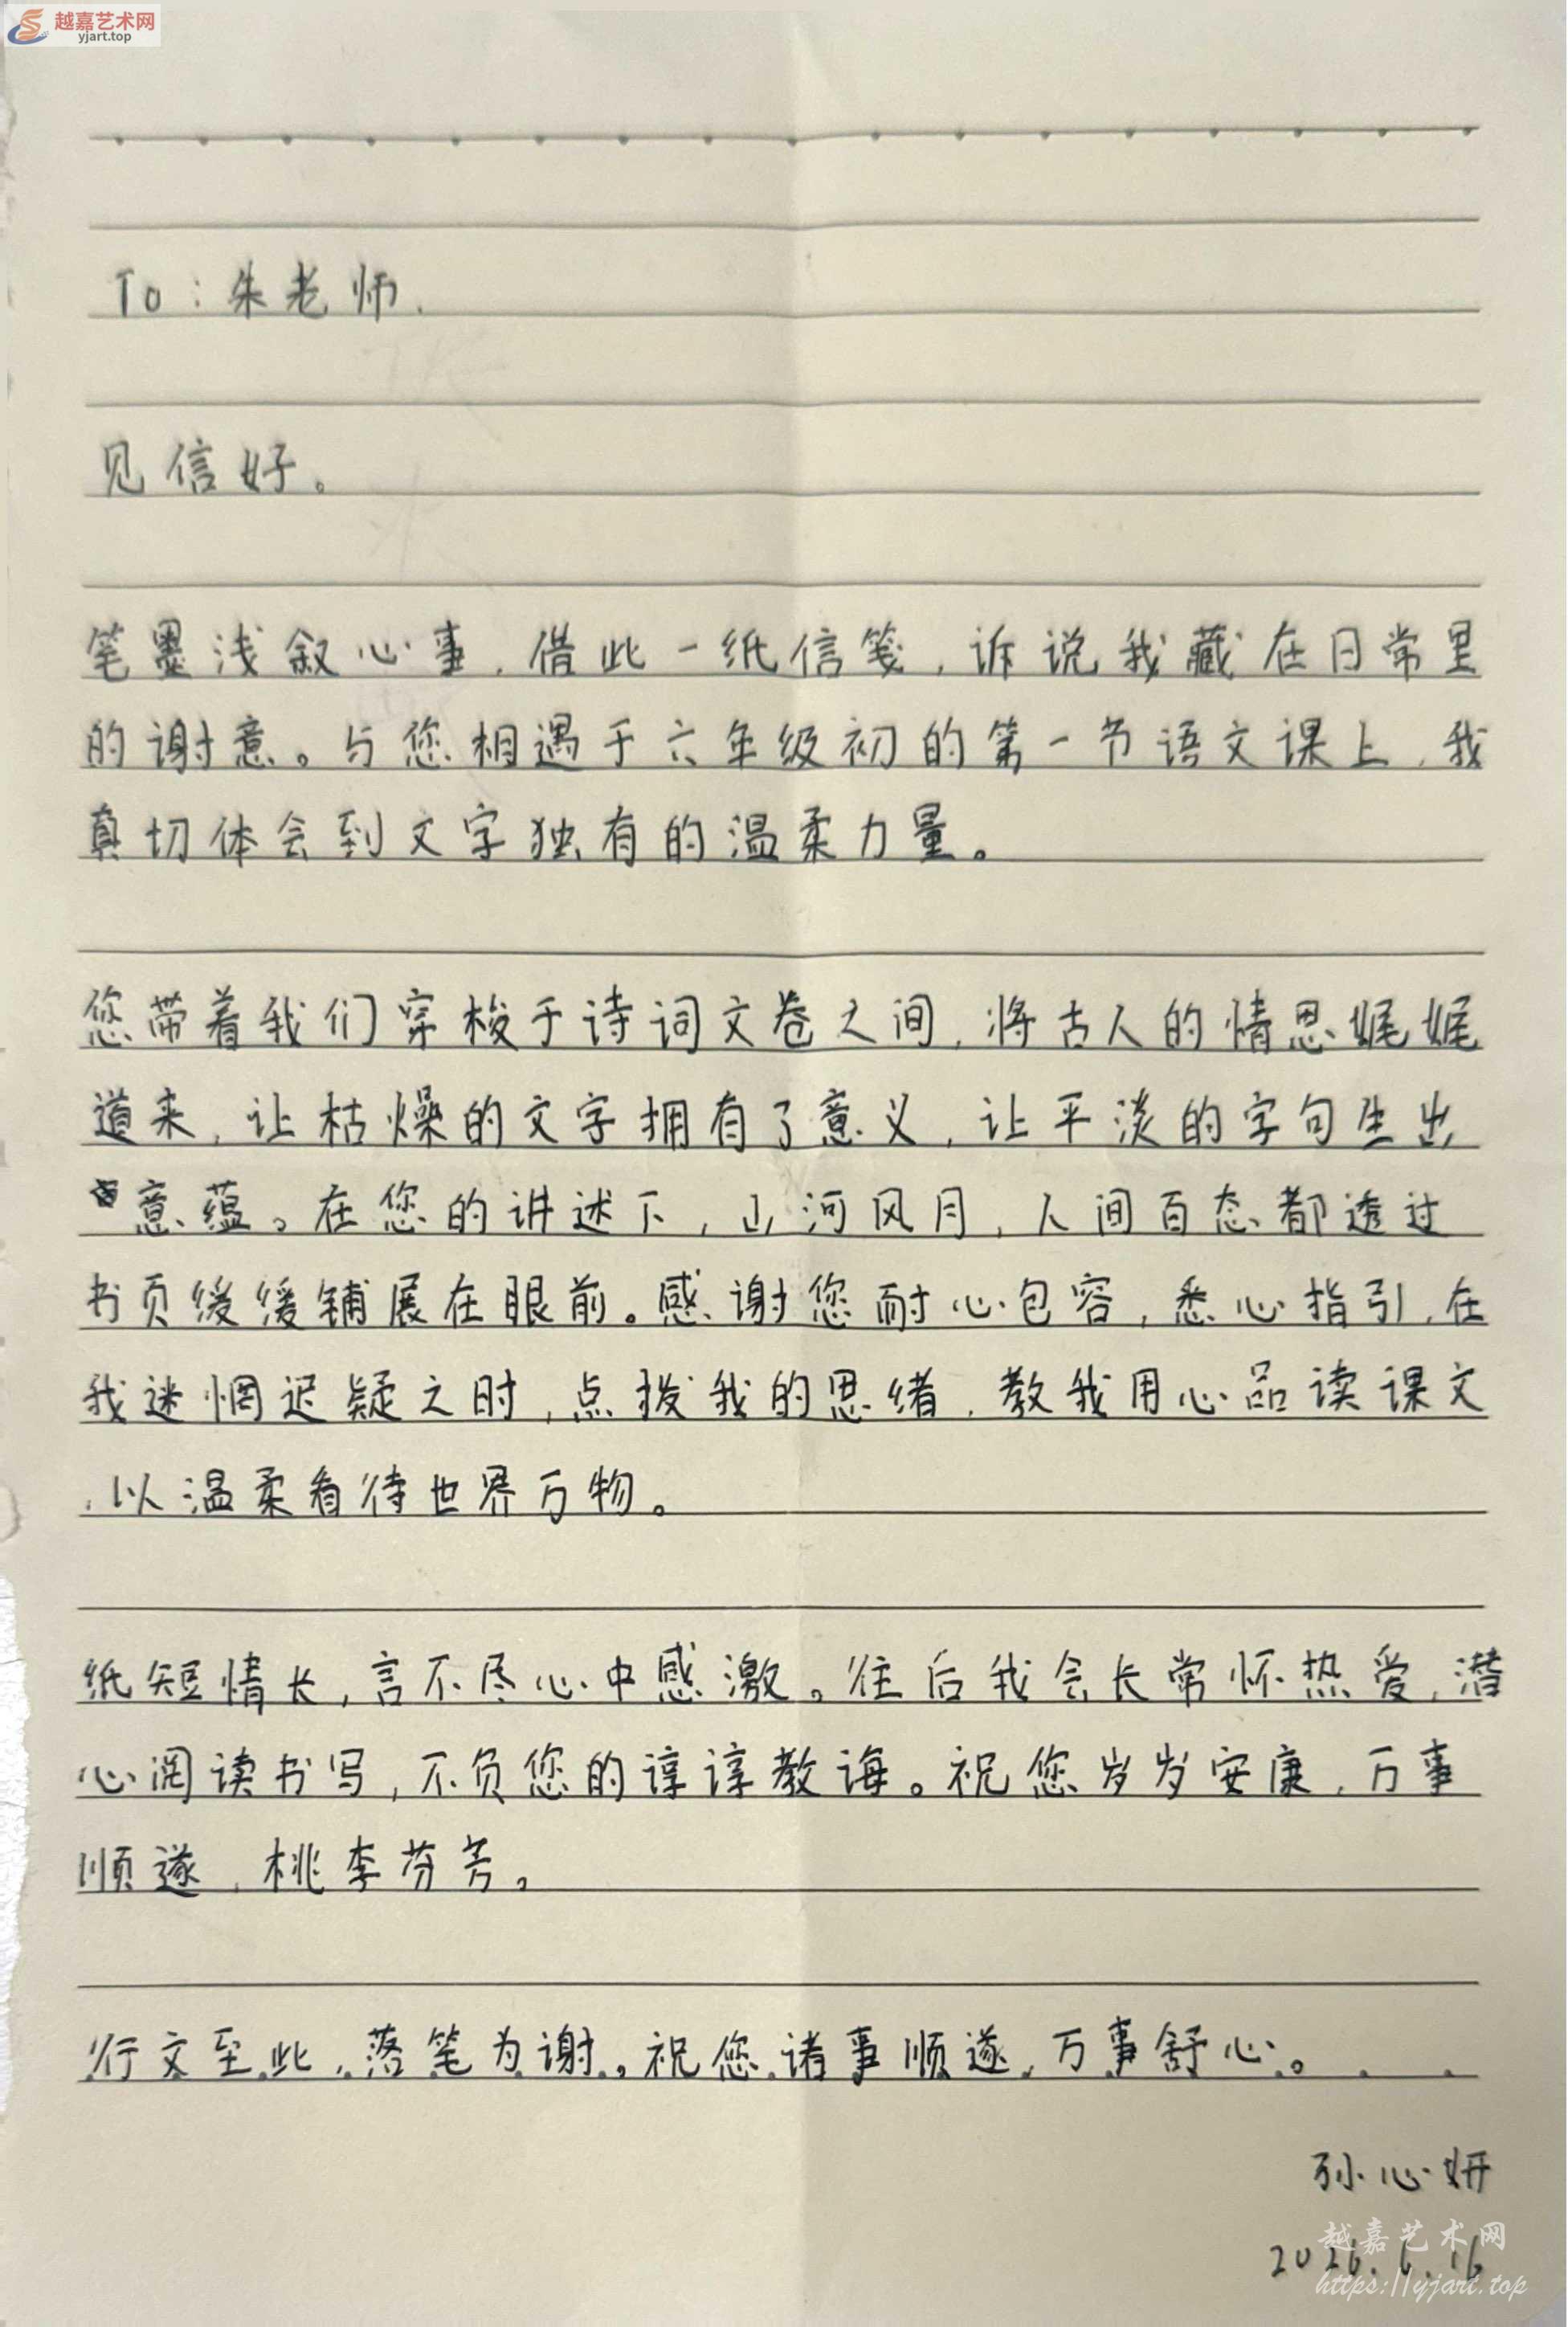 越嘉艺术网
yjart.top
To：朱老师，
见信好。
笔墨浅叙心事，借此一纸信笺，诉说我藏在日常里
的谢意。与您相遇于六年级初的第一节语文课上，我
真切体会到文字独有的温柔力量。
您带着我们穿梭于诗词文卷之间，将古人的情思娓娓
道来，让枯燥的文字拥有了意义，让平淡的字句生出
意蕴。在您的讲述下，山河风月，人间百态都透过
书页缓缓铺展在眼前。感谢您耐心包容，悉心指引，在
我迷惘迟疑之时，点拨我的思绪，教我用心品读课文
，以温柔看待世界万物。
纸短情长，言不尽心中感激。往后我会长常怀热爱，潜
心阅读书写，不负您的谆谆教诲。祝您岁岁安康，万事
顺遂，桃李芬芳。
行文至此，落笔为谢。祝您诸事顺遂，万事舒心。
孙心妍
越嘉艺术网
2026.6.16
https://yjart.top